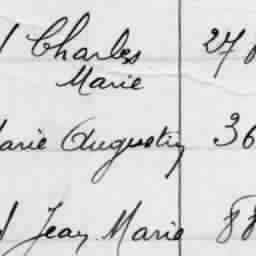 Charles 27
Marie
Marie Augustin 36
Jean Marie 88